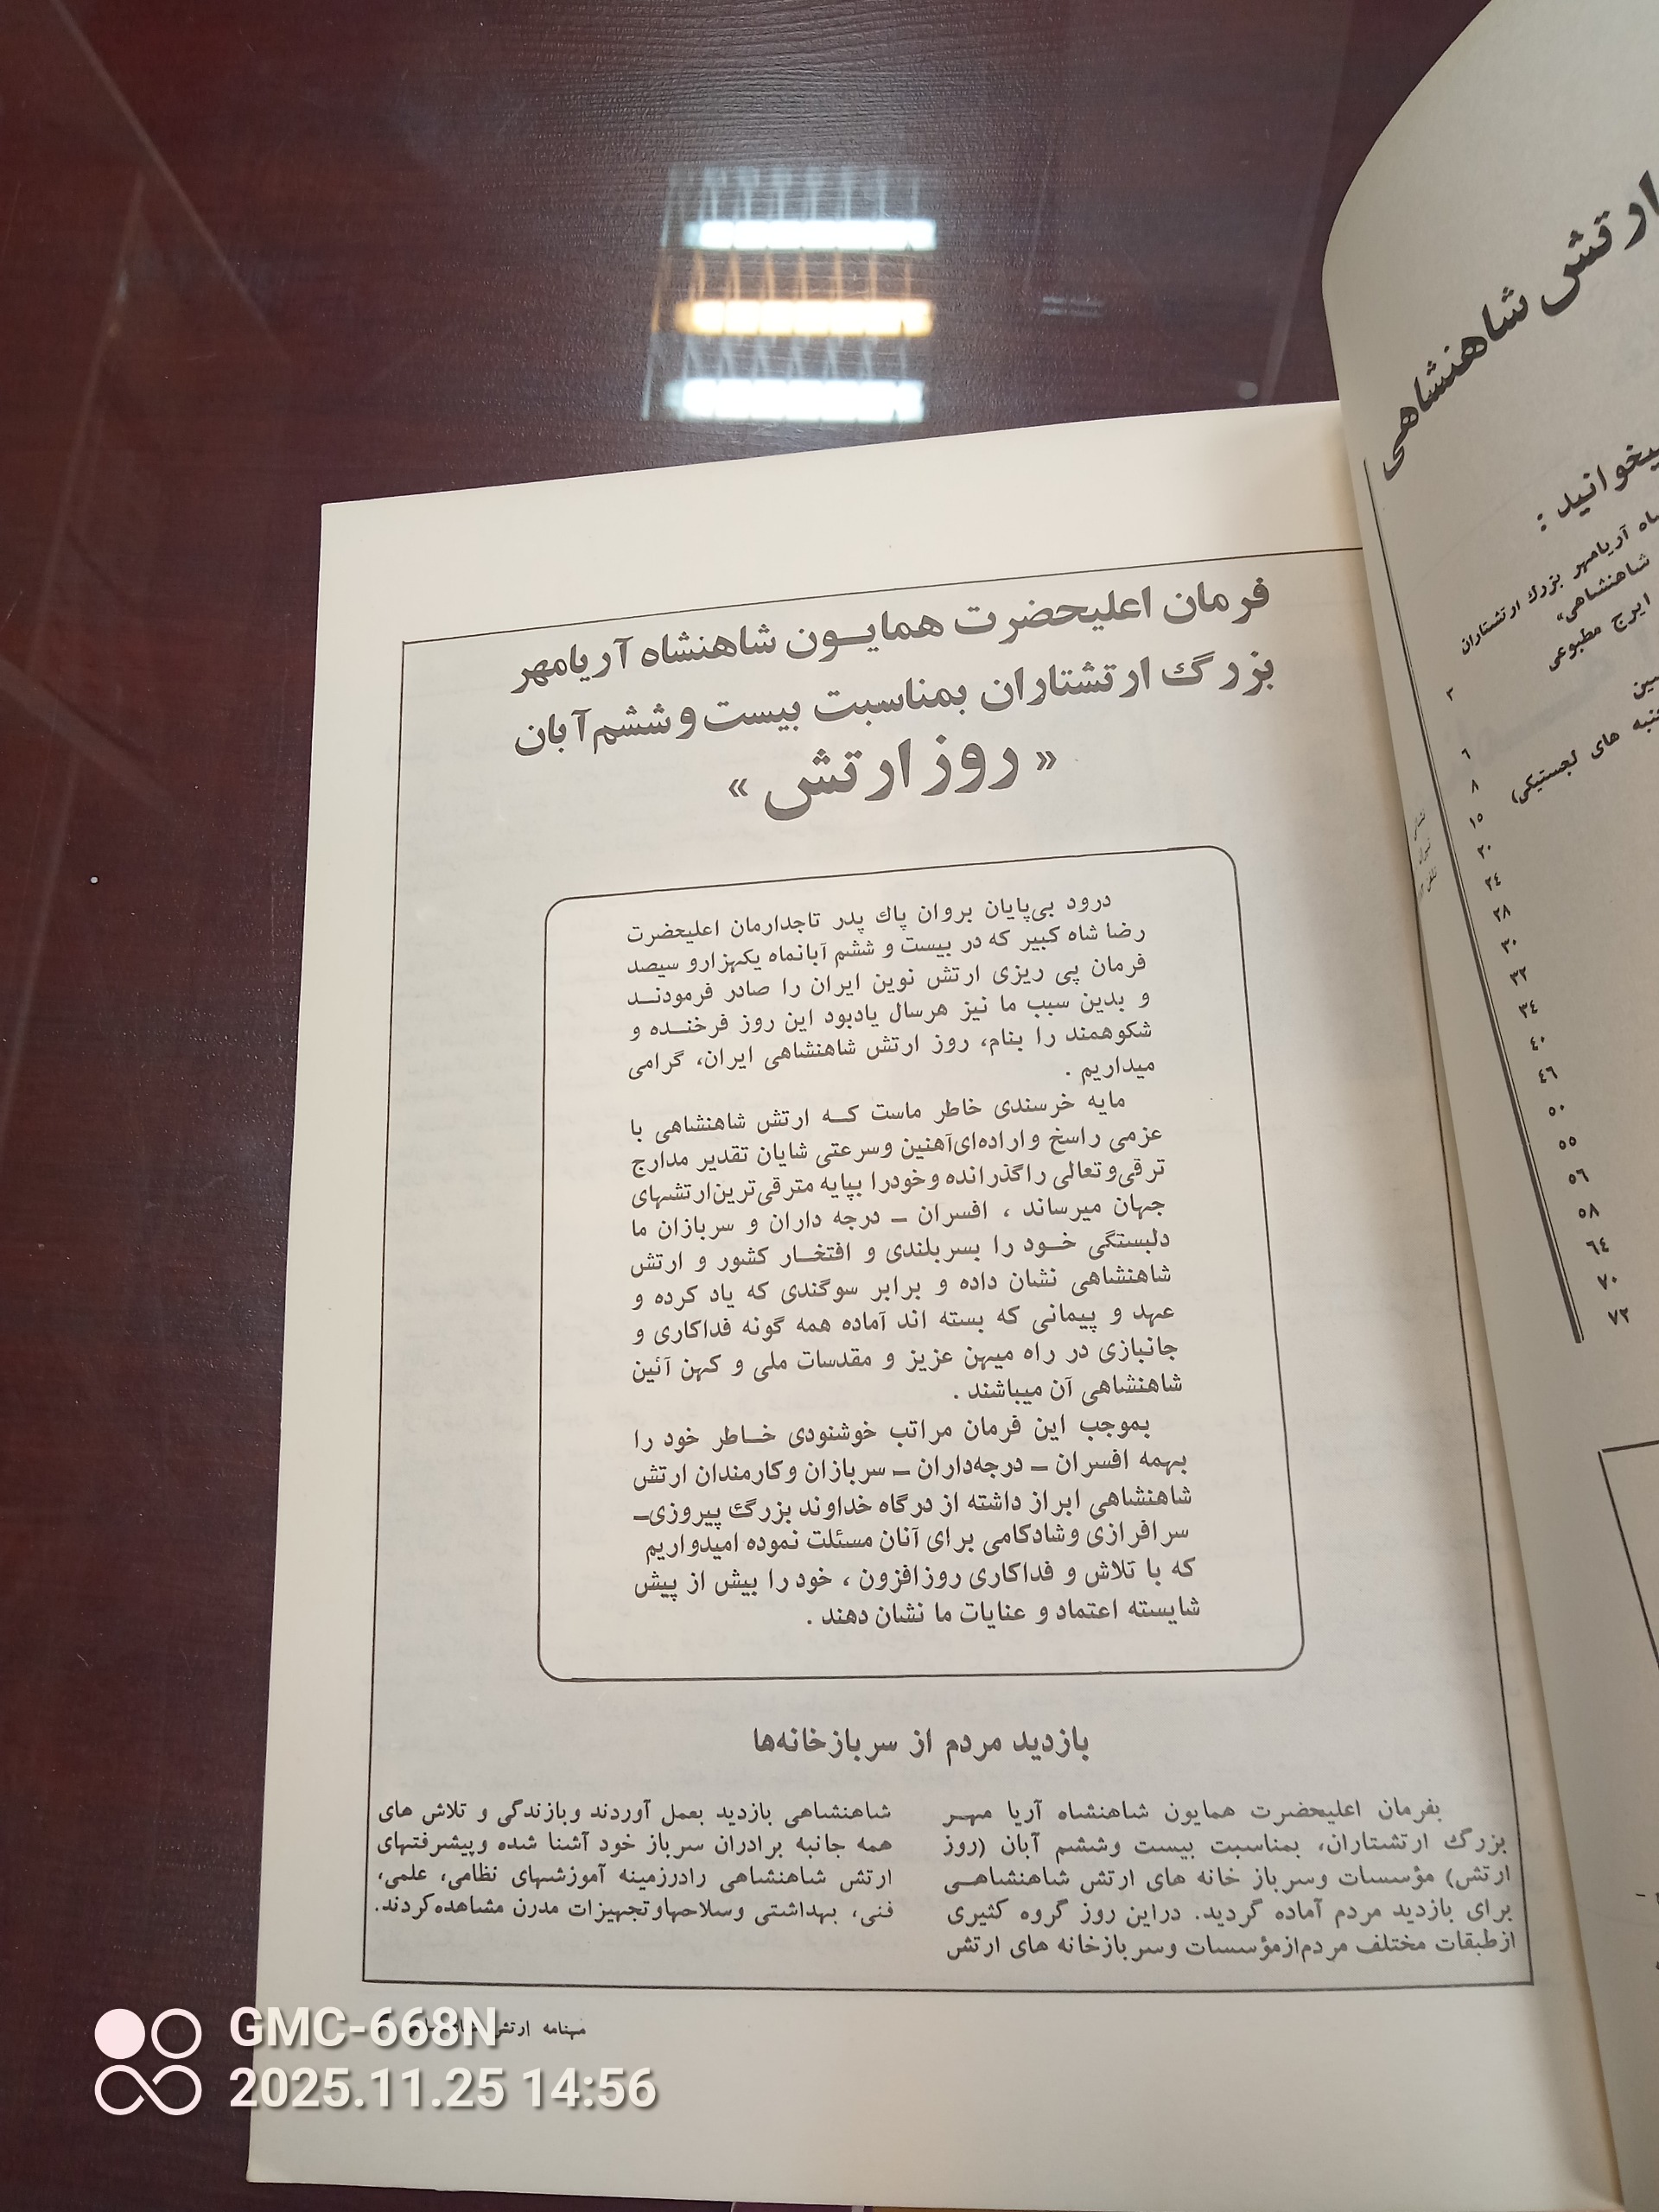 فرمان اعلیحضرت همایون شاهنشاه آریامهر
بزرگ ارتشتاران بمناسبت بیست و ششم آبان
« روز ارتش »
درود بی‌پایان بروان پاک پدر تاجدارمان اعلیحضرت
رضا شاه کبیر که در بیست و ششم آبانماه یکهزارو سیصد
فرمان پی ریزی ارتش نوین ایران را صادر فرمودند
و بدین سبب ما نیز هرسال یادبود این روز فرخنده و
شکوهمند را بنام، روز ارتش شاهنشاهی ایران، گرامی
میداریم .
مایه خرسندی خاطر ماست که ارتش شاهنشاهی با
عزمی راسخ و اراده‌ای آهنین وسرعتی شایان تقدیر مدارج
ترقی‌و تعالی را گذرانده و خودرا بپایه مترقی‌ترین ارتشهای
جهان میرساند ، افسران ـ درجه داران و سربازان ما
دلبستگی خود را بسربلندی و افتخار کشور و ارتش
شاهنشاهی نشان داده و برابر سوگندی که یاد کرده و
عهد و پیمانی که بسته اند آماده همه گونه فداکاری و
جانبازی در راه میهن عزیز و مقدسات ملی و کهن آئین
شاهنشاهی آن میباشند .
بموجب این فرمان مراتب خوشنودی خاطر خود را
بهمه افسران ـ درجه‌داران ـ سربازان و کارمندان ارتش
شاهنشاهی ابراز داشته از درگاه خداوند بزرگ پیروزی‌ـ
سرافرازی وشادکامی برای آنان مسئلت نموده امیدواریم
که با تلاش و فداکاری روزافزون ، خود را بیش از پیش
شایسته اعتماد و عنایات ما نشان دهند .
بازدید مردم از سربازخانه‌ها
بفرمان اعلیحضرت همایون شاهنشاه آریا مهر
بزرگ ارتشتاران، بمناسبت بیست وششم آبان (روز
ارتش) مؤسسات وسرباز خانه های ارتش شاهنشاهی
برای بازدید مردم آماده گردید. دراین روز گروه کثیری
ازطبقات مختلف مردم ازمؤسسات وسربازخانه های ارتش
شاهنشاهی بازدید بعمل آوردند وبازندگی و تلاش های
همه جانبه برادران سرباز خود آشنا شده وپیشرفتهای
ارتش شاهنشاهی رادرزمینه آموزشهای نظامی، علمی،
فنی، بهداشتی وسلاحهاوتجهیزات مدرن مشاهده کردند.
مهنامه ارتش
ارتش شاهنشاهی
میخوانید :
آریامهر بزرگ ارتشتاران
شاهنشاهی"
ایرج مطبوعی
۳
های لجستیکی)
۶
۸
۱۵
۲۰
۲۴
۲۸
۳۰
۳۲
۳۴
۴۰
۴۶
۵۰
۵۵
۵۶
۵۸
۶۴
۷۰
۷۲
GMC-668N
2025.11.25 14:56